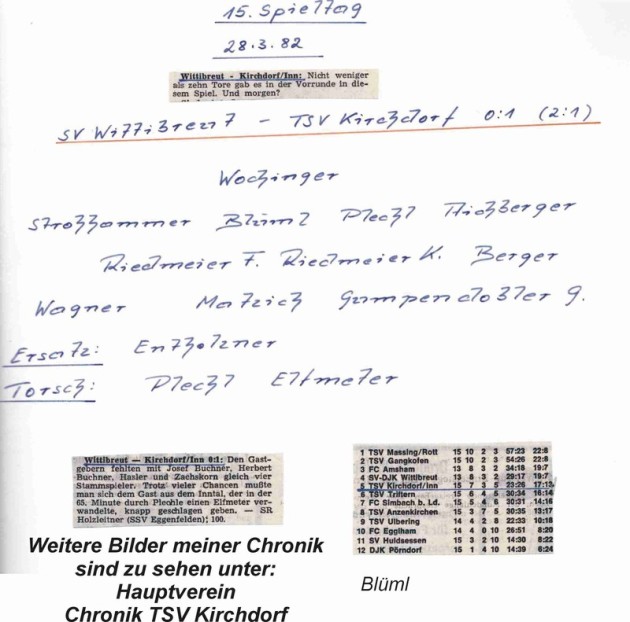 15. Spieltag
28.3.82
Wittibreut - Kirchdorf/Inn: Nicht weniger
als zehn Tore gab es in der Vorrunde in die-
sem Spiel. Und morgen?
SV Wittibreut - TSV Kirchdorf 0:1 (2:1)
Wochinger
Strohhammer Blüml Plechl Aichberger
Riedmeier F. Riedmeier K. Berger
Wagner Matzich Gumpendobler G.
Ersatz: Entholzner
Torsch: Plechl Elfmeter
Wittibreut — Kirchdorf/Inn 0:1: Den Gast-
gebern fehlten mit Josef Buchner, Herbert
Buchner, Hasler und Zachskorn gleich vier
Stammspieler. Trotz vieler Chancen mußte
man sich dem Gast aus dem Inntal, der in der
65. Minute durch Plechle einen Elfmeter ver-
wandelte, knapp geschlagen geben. — SR
Holzleitner (SSV Eggenfelden); 100.
1 TSV Massing/Rott 15 10 2 3 57:23 22:8
2 TSV Gangkofen 15 10 2 3 54:26 22:8
3 FC Amsham 13 8 3 2 34:18 19:7
4 SV-DJK Wittibreut 13 8 3 2 29:17 19:7
5 TSV Kirchdorf/Inn 15 7 3 5 23:26 17:13
6 TSV Triftern 15 6 4 5 30:34 16:14
7 FC Simbach b. Ld. 15 5 4 6 30:31 14:16
8 TSV Anzenkirchen 15 3 7 5 30:35 13:17
9 TSV Ulbering 14 4 2 8 22:33 10:18
10 FC Egglham 14 4 0 10 26:51 8:20
11 SV Huldsessen 15 3 2 10 14:30 8:22
12 DJK Pörndorf 15 1 4 10 14:39 6:24
Weitere Bilder meiner Chronik
sind zu sehen unter:
Hauptverein
Chronik TSV Kirchdorf
Blüml